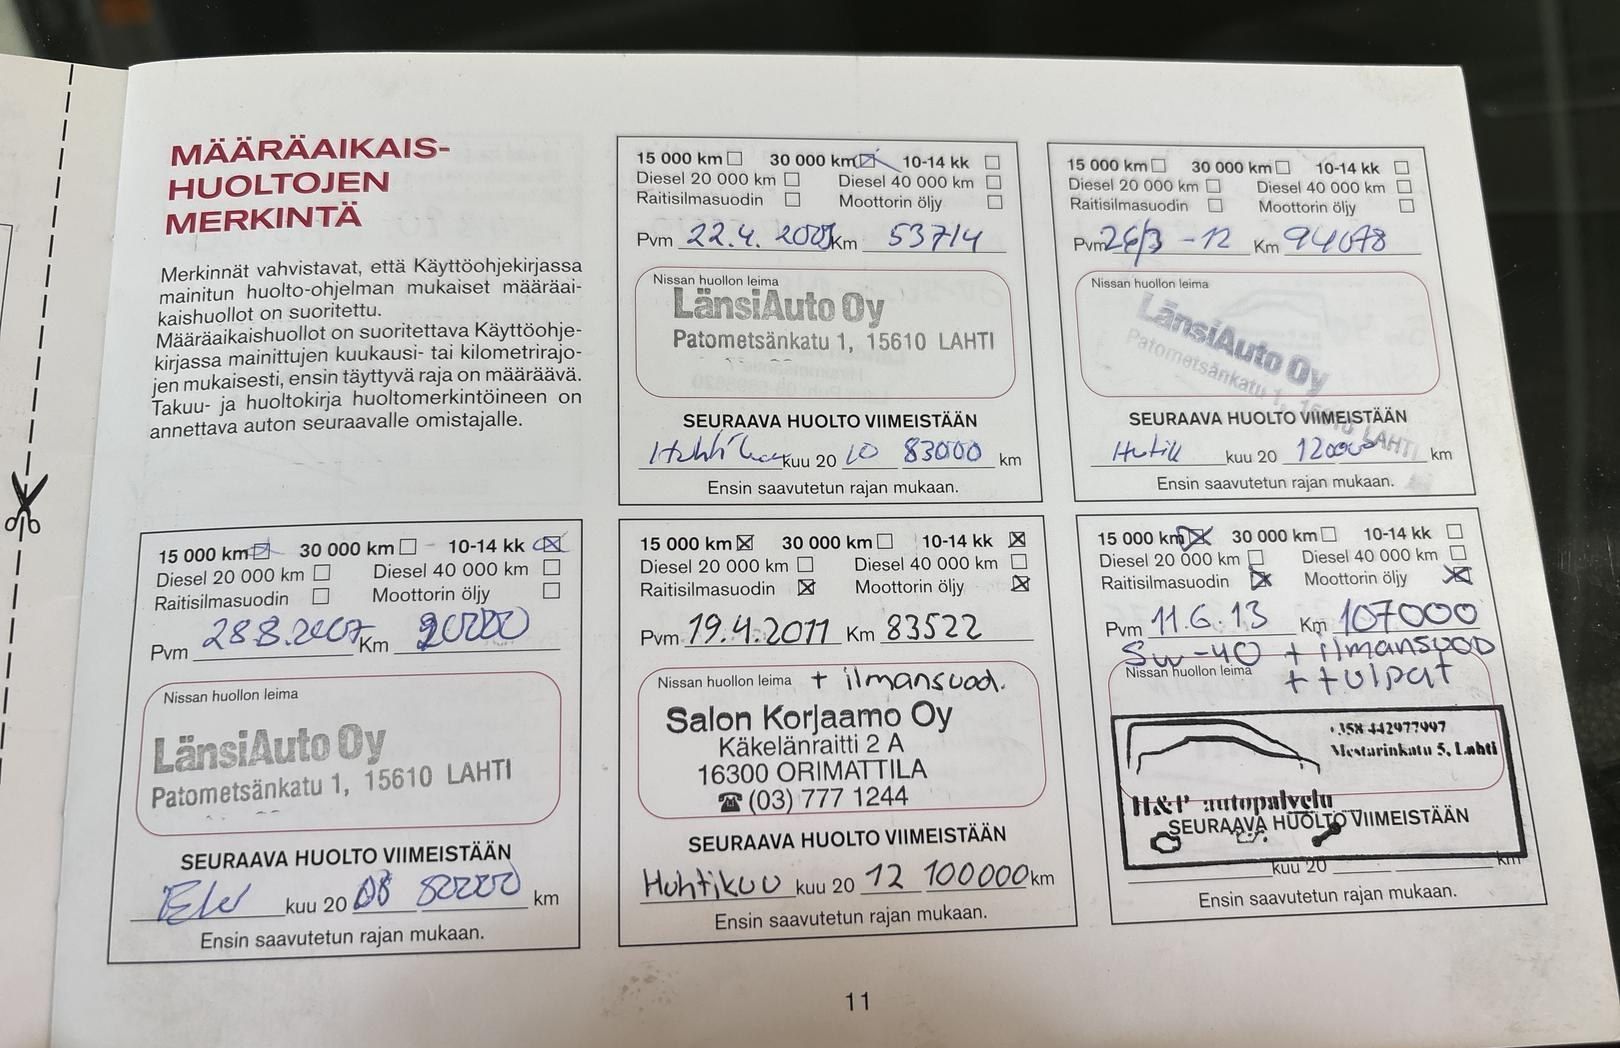 MÄÄRÄAIKAIS-
HUOLTOJEN
MERKINTÄ
Merkinnät vahvistavat, että Käyttöohjekirjassa
mainitun huolto-ohjelman mukaiset määräai-
kaishuollot on suoritettu.
Määräaikaishuollot on suoritettava Käyttöohje-
kirjassa mainittujen kuukausi- tai kilometrirajo-
jen mukaisesti, ensin täyttyvä raja on määräävä.
Takuu- ja huoltokirja huoltomerkintöineen on
annettava auton seuraavalle omistajalle.
15 000 km 30 000 km 10-14 kk
Diesel 20 000 km Diesel 40 000 km
Raitisilmasuodin Moottorin öljy
Pvm 22.4. Km 53714
Nissan huollon leima
LänsiAuto Oy
Patometsänkatu 1, 15610 LAHTI
SEURAAVA HUOLTO VIIMEISTÄÄN
kuu 20 10 83000 km
Ensin saavutetun rajan mukaan.
15 000 km 30 000 km 10-14 kk
Diesel 20 000 km Diesel 40 000 km
Raitisilmasuodin Moottorin öljy
Pvm 26/3 -12 Km 94078
Nissan huollon leima
LänsiAuto Oy
Patometsänkatu 1, 15610 LAHTI
SEURAAVA HUOLTO VIIMEISTÄÄN
kuu 20 120000 km
Ensin saavutetun rajan mukaan.
15 000 km 30 000 km 10-14 kk
Diesel 20 000 km Diesel 40 000 km
Raitisilmasuodin Moottorin öljy
Pvm 28.8.2007 Km
Nissan huollon leima
LänsiAuto Oy
Patometsänkatu 1, 15610 LAHTI
SEURAAVA HUOLTO VIIMEISTÄÄN
Elo kuu 20 08 km
Ensin saavutetun rajan mukaan.
15 000 km 30 000 km 10-14 kk
Diesel 20 000 km Diesel 40 000 km
Raitisilmasuodin Moottorin öljy
Pvm 19.4.2011 Km 83522
Nissan huollon leima + ilmansuod.
Salon Korjaamo Oy
Käkelänraitti 2 A
16300 ORIMATTILA
☎ (03) 777 1244
SEURAAVA HUOLTO VIIMEISTÄÄN
Huhtikuu kuu 20 12 100000 km
Ensin saavutetun rajan mukaan.
15 000 km 30 000 km 10-14 kk
Diesel 20 000 km Diesel 40 000 km
Raitisilmasuodin Moottorin öljy
Pvm 11.6.13 Km 107000
5w-40 + ilmansuod
Nissan huollon leima + tulpat
+358 442977997
Mestarinkatu 5, Lahti
H&P autopalvelu
SEURAAVA HUOLTO VIIMEISTÄÄN
kuu 20 km
Ensin saavutetun rajan mukaan.
11